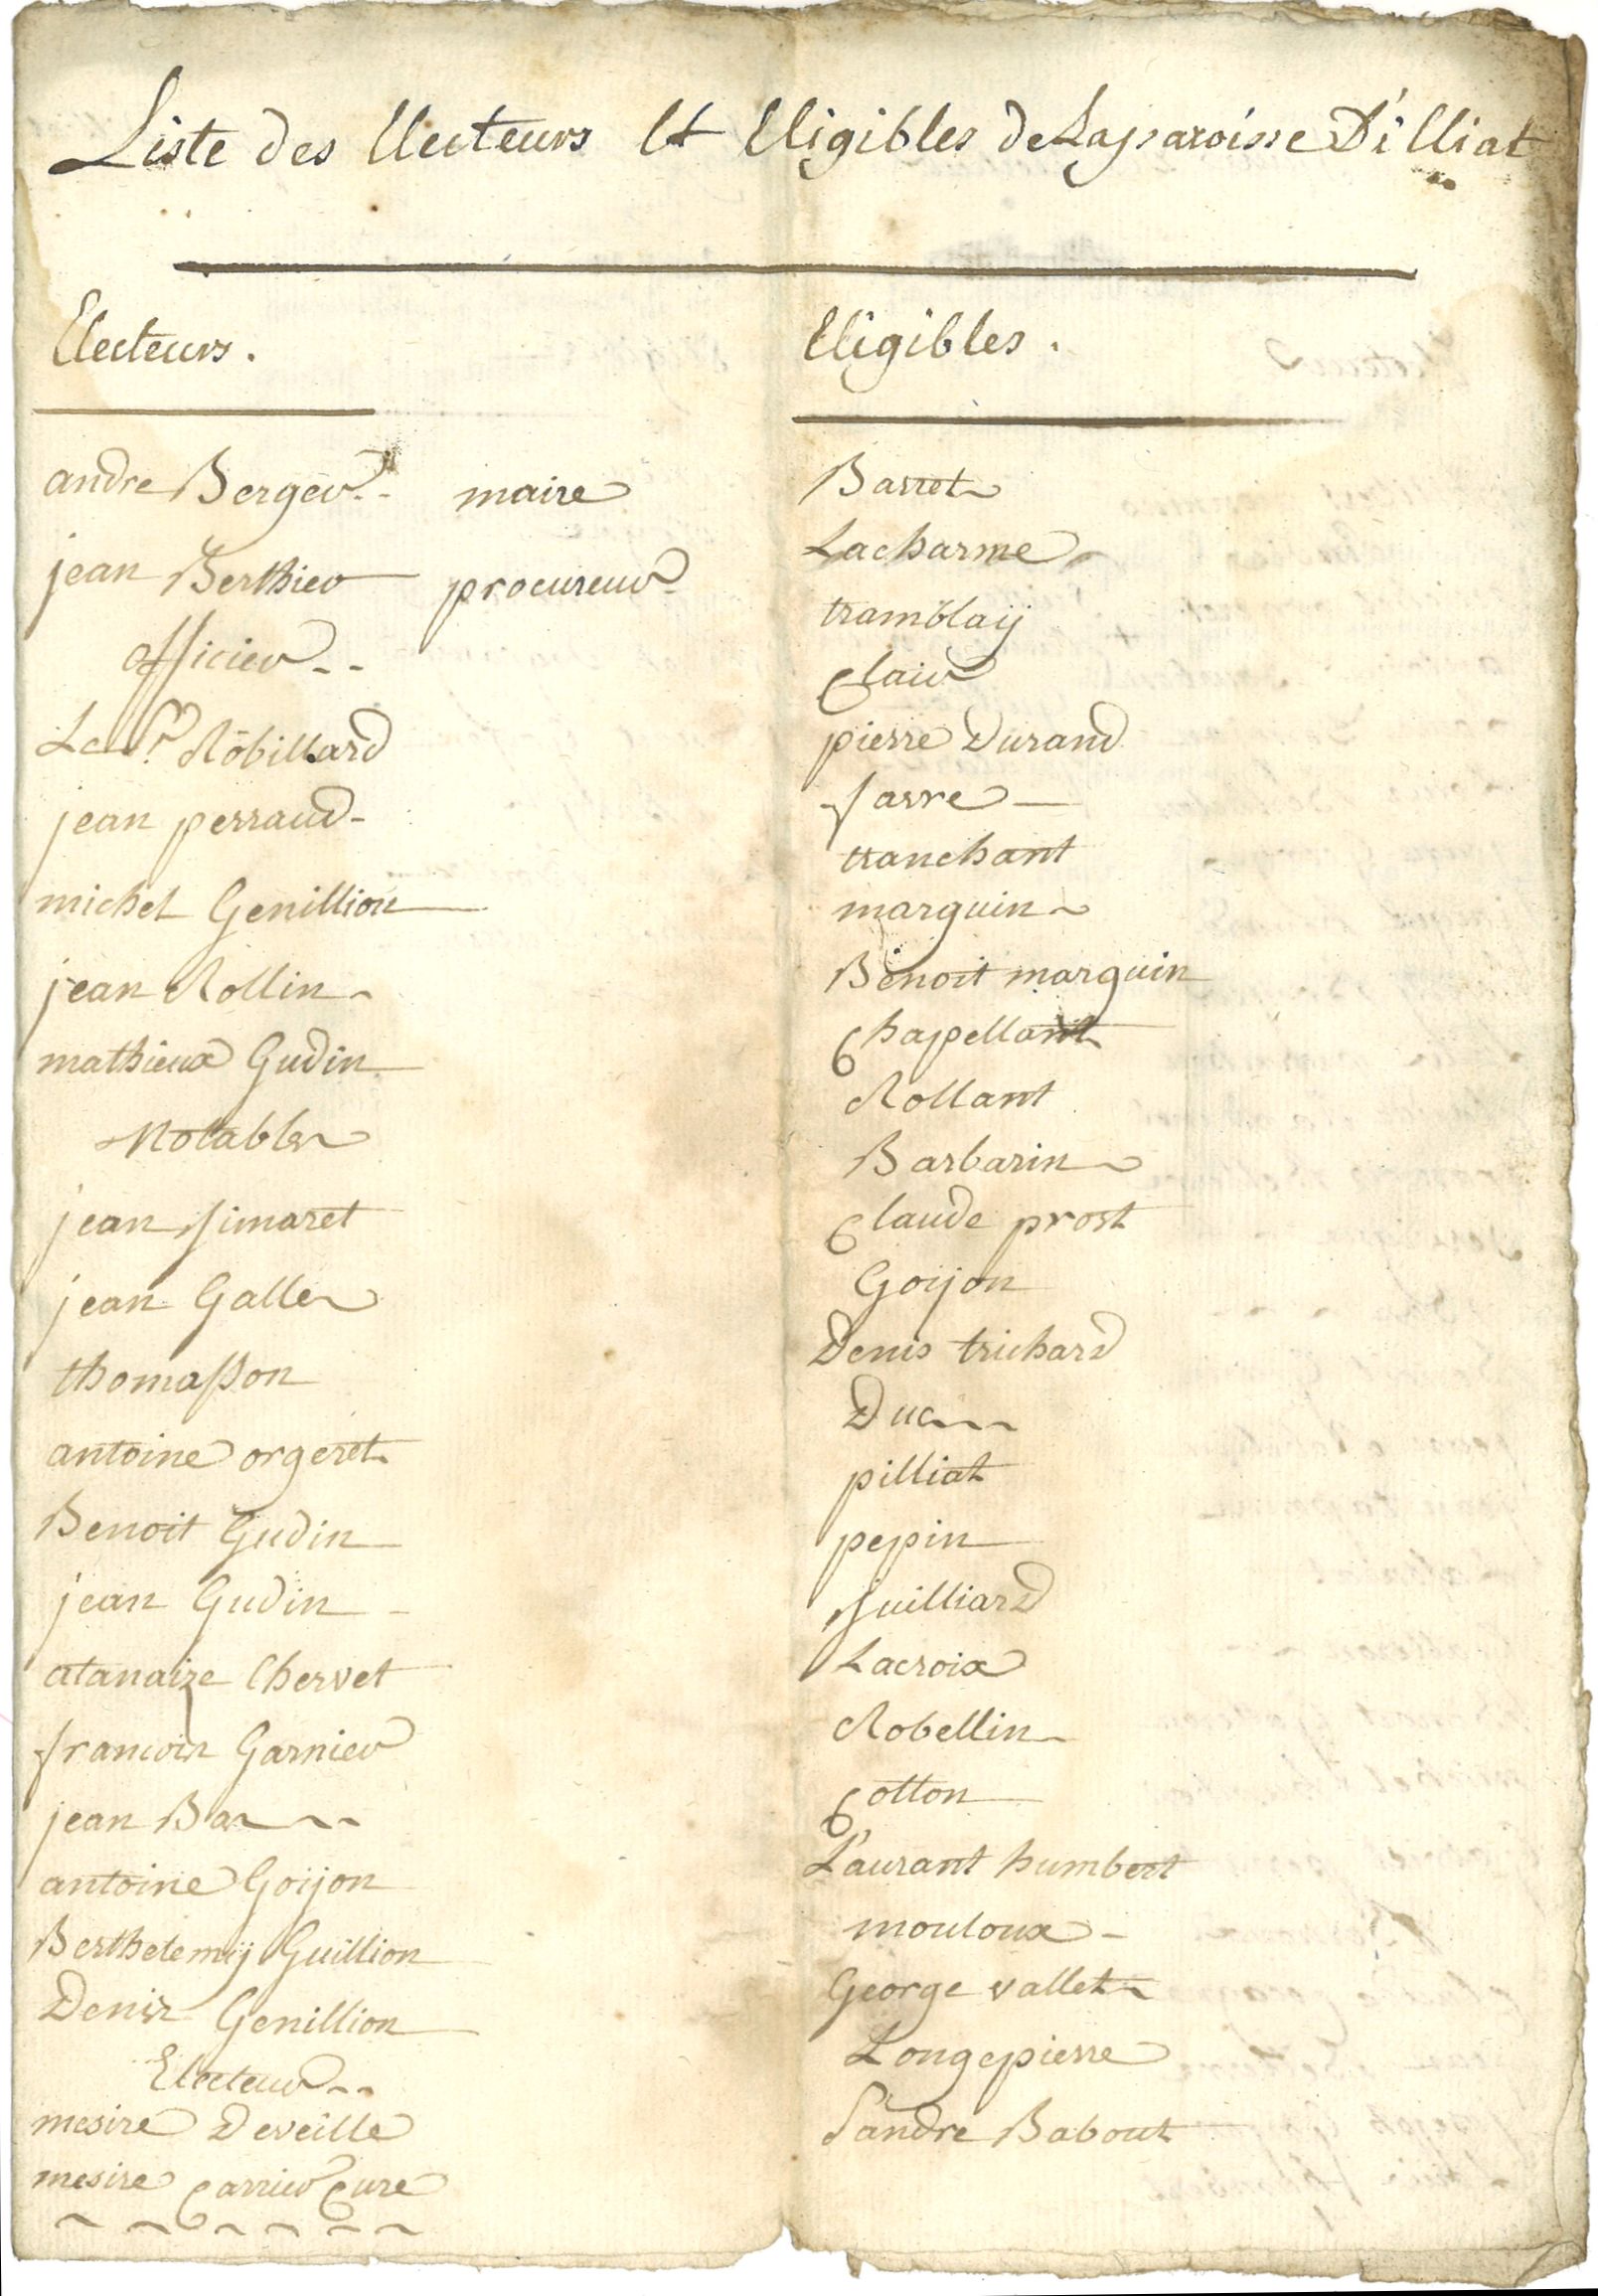 Liste des Electeurs Et Eligibles de Laparoisse D'illiat
Electeurs.
andre Berger maire
jean Berthier procureur
officier
Le Sr. Robillard
jean perraud
michel Genillion
jean Rollin
mathieux Gudin
Notables
jean simaret
jean Galles
thomasson
antoine orgeret
Benoit Gudin
jean Gudin
atanaize Chervet
francois Garnier
jean Bas
antoine Goijon
Berthelemij Guillion
Denis Genillion
Electeur
mesire Deveille
mesire Carrier Cure
Eligibles.
Barret
Lacharme
tramblaij
Clair
pierre Durand
farre
tranchant
marguin
Benoit marguin
Chapellant
Rollant
Barbarin
Claude prost
Goijon
Denis trichard
Duc
pilliat
pepin
juilliard
Lacroix
Robellin
Cotton
Laurant humbert
mouloux
George vallet
Longepierre
Sandre Babout